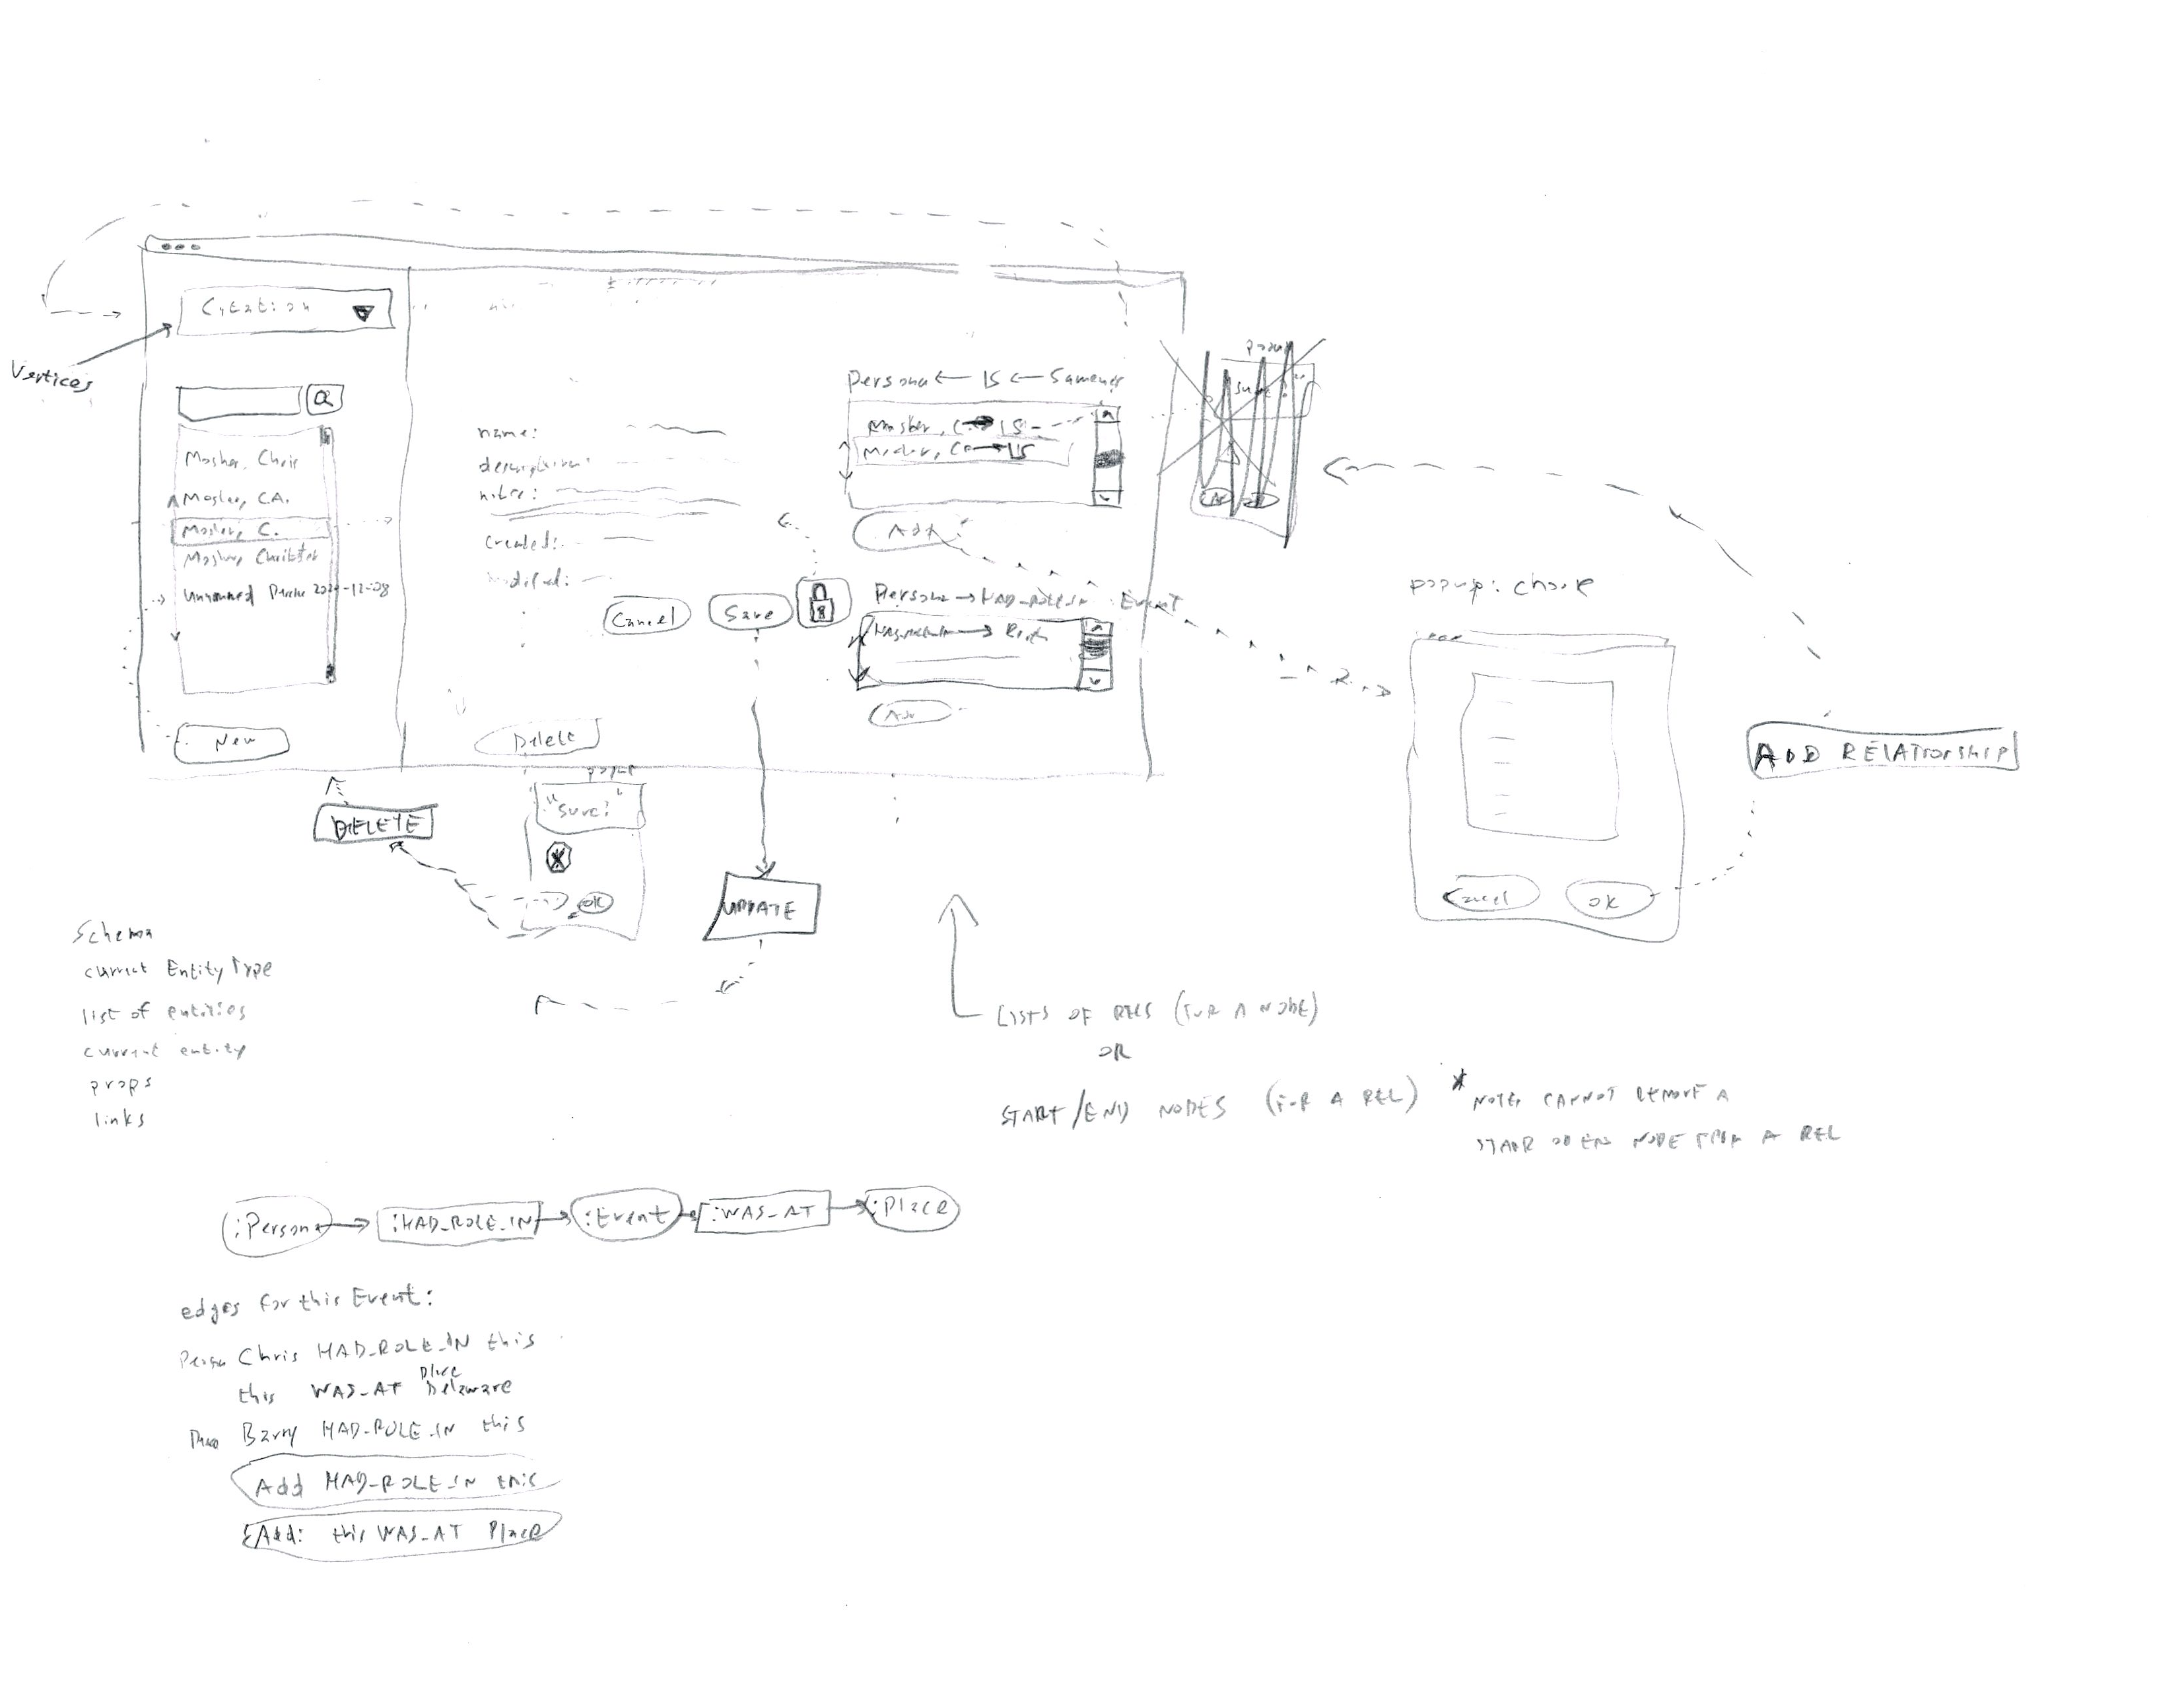 Citation
Vertices
Mosher, Chris
Mosher, CA.
Mosher, C.
Mosher, Christopher
Unnamed 2020-12-08
New
name:
description:
notes:
created:
modified:
Cancel
Save
Delete
Persona ← IS ← Sameness
Mosher, C. → IS
Mosher, C → IS
Add
Persona → HAD_ROLE_IN Event
→ Birth
Add
popup
popup: choose
Cancel
OK
ADD RELATIONSHIP
popup
"Sure?"
OK
DELETE
UPDATE
Schema
current Entity Type
list of entities
current entity
props
links
LISTS OF RELS (FOR A NODE)
OR
START/END NODES (FOR A REL)
* NOTE: CANNOT REMOVE A
START OR END NODE FROM A REL
:Persona → :HAD_ROLE_IN → :Event → :WAS_AT → :Place
edges for this Event:
Persona Chris HAD_ROLE_IN this
this WAS_AT Place Delaware
Barry HAD_ROLE_IN this
Add HAD_ROLE_IN this
Add: this WAS_AT Place